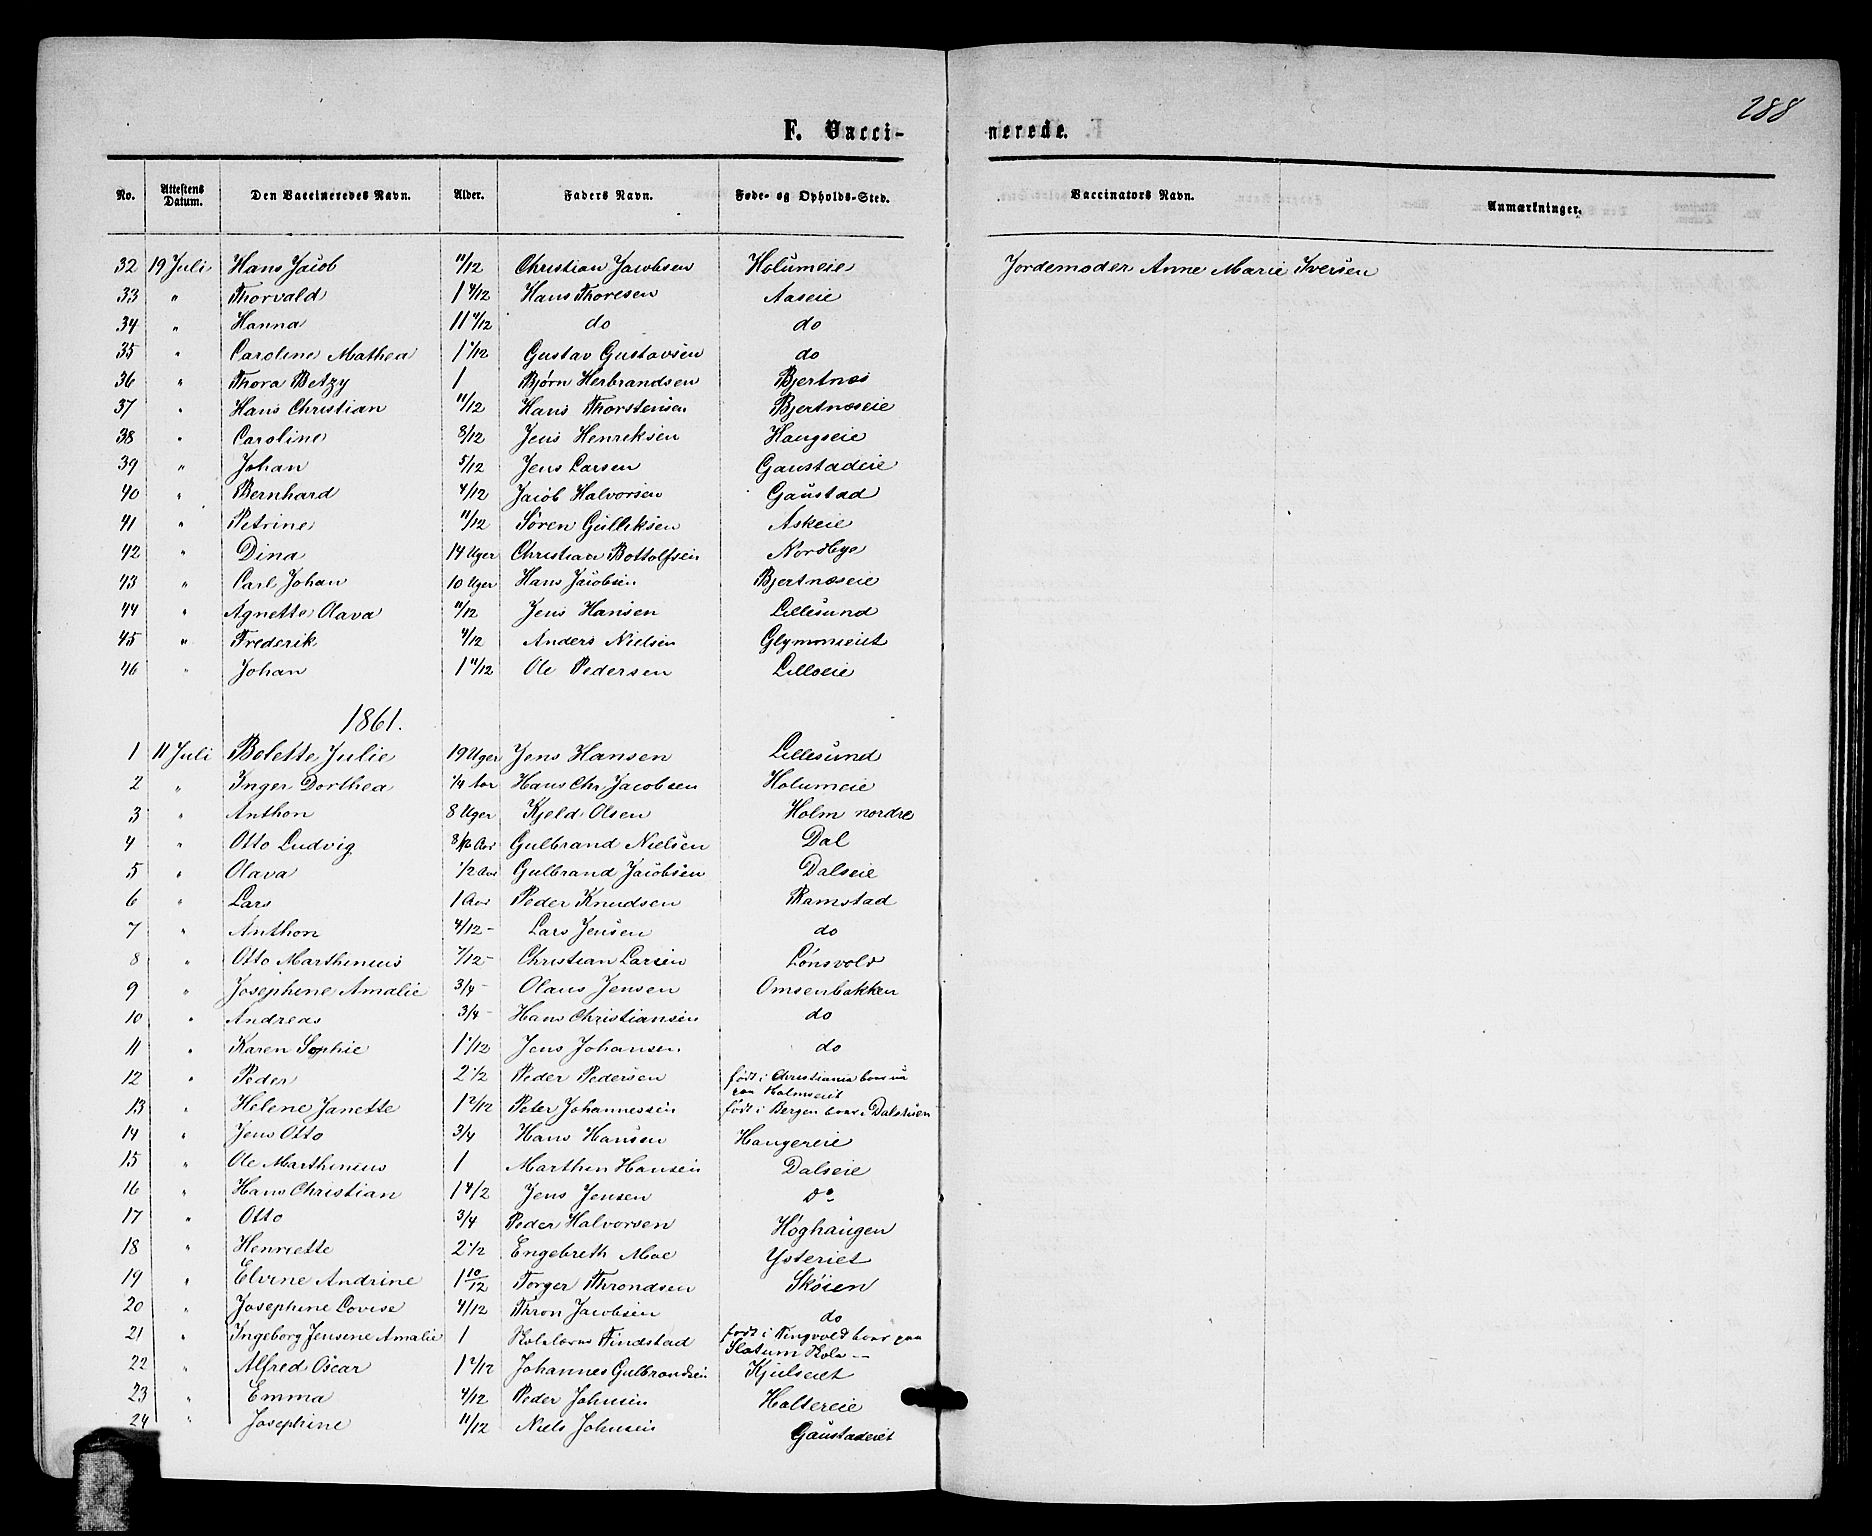 288
F. Vacci-nerede.
No. Attestens Datum. Den Vaccineredes Navn. Alder. Faders Navn. Føde- og Opholds-Sted. Vaccinators Navn. Anmærkninger.
32 19 Juli Hans Jacob 11/12 Christian Jacobsen Holumeie Jordemoder Anne Marie Iversen
33 " Thorvald 1 4/12 Hans Thoresen Aaseie
34 " Hanna 11 4/12 do do
35 " Caroline Mathea 1 1/12 Gustav Gustavsen do
36 " Thora Betzy 1 Bjørn Herbrandsen Bjertnæs
37 " Hans Christian 11/12 Hans Thorstensen Bjertnæseie
38 " Caroline 8/12 Jens Henriksen Haugseie
39 " Johan 5/12 Jens Larsen Gaustadeie
40 " Bernhard 4/12 Jacob Halvorsen Gaustad
41 " Petrine 11/12 Søren Gulliksen Askeie
42 " Dina 14 Uger Christian Bottolfsen Nordbye
43 " Carl Johan 10 Uger Hans Jacobsen Bjertnæseie
44 " Agnette Olava 11/12 Jens Hansen Lillesund
45 " Frederik 4/12 Anders Nielsen Glymmseiet
46 " Johan 1 11/12 Ole Pedersen Lilloeie
1861.
1 11 Juli Bolette Julie 19 Uger Jens Hansen Lillesund
2 " Inger Dorthea 1/4 Aar Hans Chr Jacobsen Holumeie
3 " Anthon 8 Uger Kjeld Olsen Holm nordre
4 " Otto Ludvig Aar Gulbrand Nielsen Dal
5 " Olava 1/2 Aar Gulbrand Jacobsen Dalseie
6 " Lars 1 Aar Peder Knudsen Ramstad
7 " Anthon 4/12 - Lars Jensen do
8 " Otto Marthinius 7/12 - Christian Larsen Lønsvold
9 " Josephine Amalie 3/4 - Olaus Jensen Omsenbakken
10 " Andreas 3/4 - Hans Christiansen do
11 " Karen Sophie 1 1/12 Jens Johansen do
12 " Peder 2 1/2 Peder Pedersen født i Christiania boer nu
paa Holmseiet
13 " Helene Janette 1 2/12 Peter Johannessen født i Bergen boer i Dalstuen
14 " Jens Otto 3/4 Hans Hansen Haugereie
15 " Ole Marthinius 1 Marthin Hansen Dalseie
16 " Hans Christian 1 4/2 Jens Jensen do
17 " Otto 3/4 Peder Halvorsen Høghaugen
18 " Henriette 2 1/2 Engebreth Moe Ysteriet
19 " Elvine Andrine 1 10/12 Torger Throndsen Skøien
20 " Josephine Lovise 4/12 Thron Jacobsen do
21 " Ingeborg Jensine Amalie 1 Findstad født i Tingvold boer paa
Slatum Skole
22 " Alfred Oscar 1 2/12 Johannes Gulbrandsen Kjulseiet
23 " Emma 4/12 Peder Johnsen Haltereie
24 " Josephine 11/12 Niels Johnsen Gaustadeiet